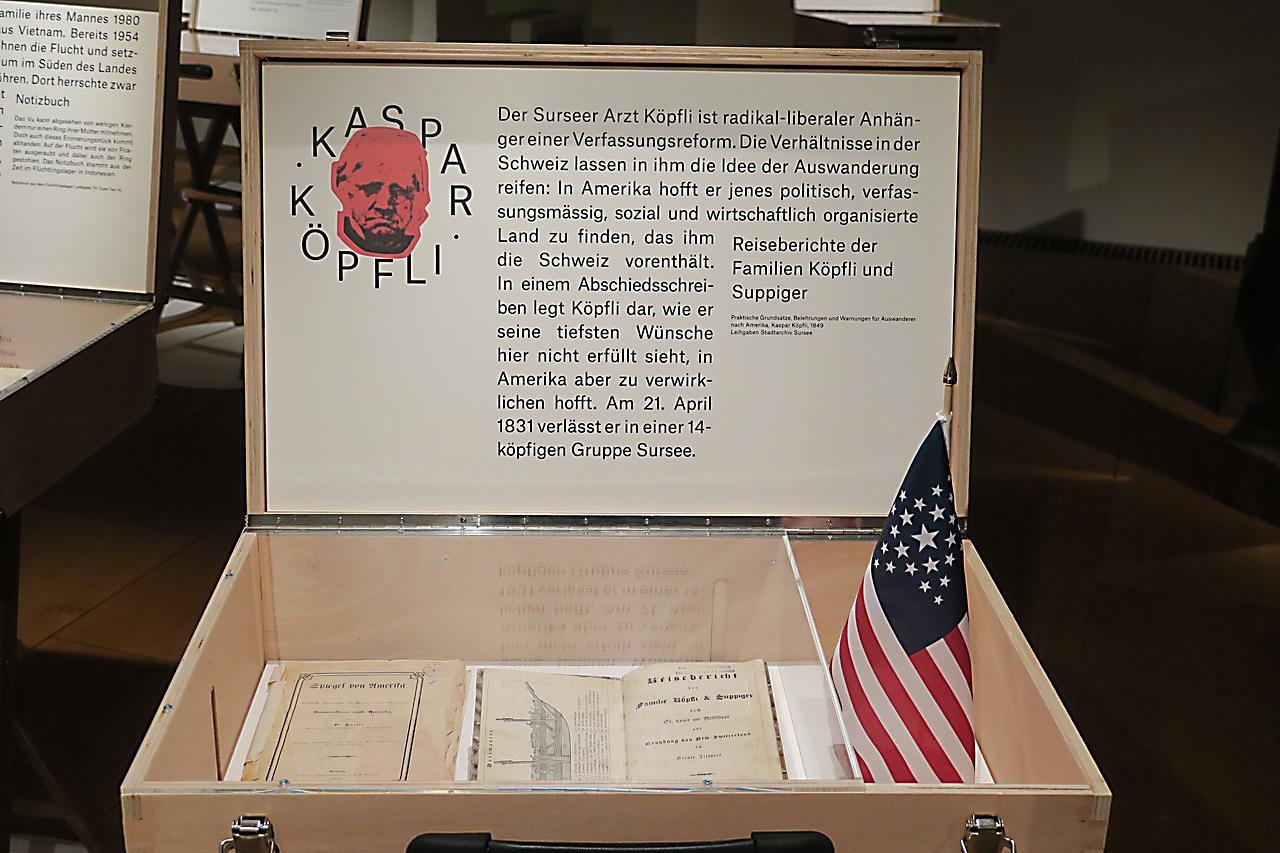 amilie ihres Mannes 1980
us Vietnam. Bereits 1954
hnen die Flucht und setz-
um im Süden des Landes
ühren. Dort herrschte zwar
t
Notizbuch
Das Vu kann abgesehen von wenigen Klei-
dern nur einen Ring ihrer Mutter mitnehmen.
Doch auch dieses Erinnerungsstück kommt
abhanden: Auf der Flucht wird sie von Pira-
ten ausgeraubt und dabei auch der Ring
gestohlen. Das Notizbuch stammt aus der
Zeit im Flüchtlingslager in Indonesien.
KASPAR
KÖPFLI
Der Surseer Arzt Köpfli ist radikal-liberaler Anhän-
ger einer Verfassungsreform. Die Verhältnisse in der
Schweiz lassen in ihm die Idee der Auswanderung
reifen: In Amerika hofft er jenes politisch, verfas-
sungsmässig, sozial und wirtschaftlich organisierte
Land zu finden, das ihm
die Schweiz vorenthält.
In einem Abschiedsschrei-
ben legt Köpfli dar, wie er
seine tiefsten Wünsche
hier nicht erfüllt sieht, in
Amerika aber zu verwirk-
lichen hofft. Am 21. April
1831 verlässt er in einer 14-
köpfigen Gruppe Sursee.
Reiseberichte der
Familien Köpfli und
Suppiger
Praktische Grundsätze, Belehrungen und Warnungen für Auswanderer
nach Amerika, Kaspar Köpfli, 1849
Leihgaben Stadtarchiv Sursee
Spiegel von Amerika.
Reisebericht
der
Familie Köpfli & Suppiger
nach
St. Louis am Mississippi
und
Gründung von New-Switzerland
im
Staate Illinois